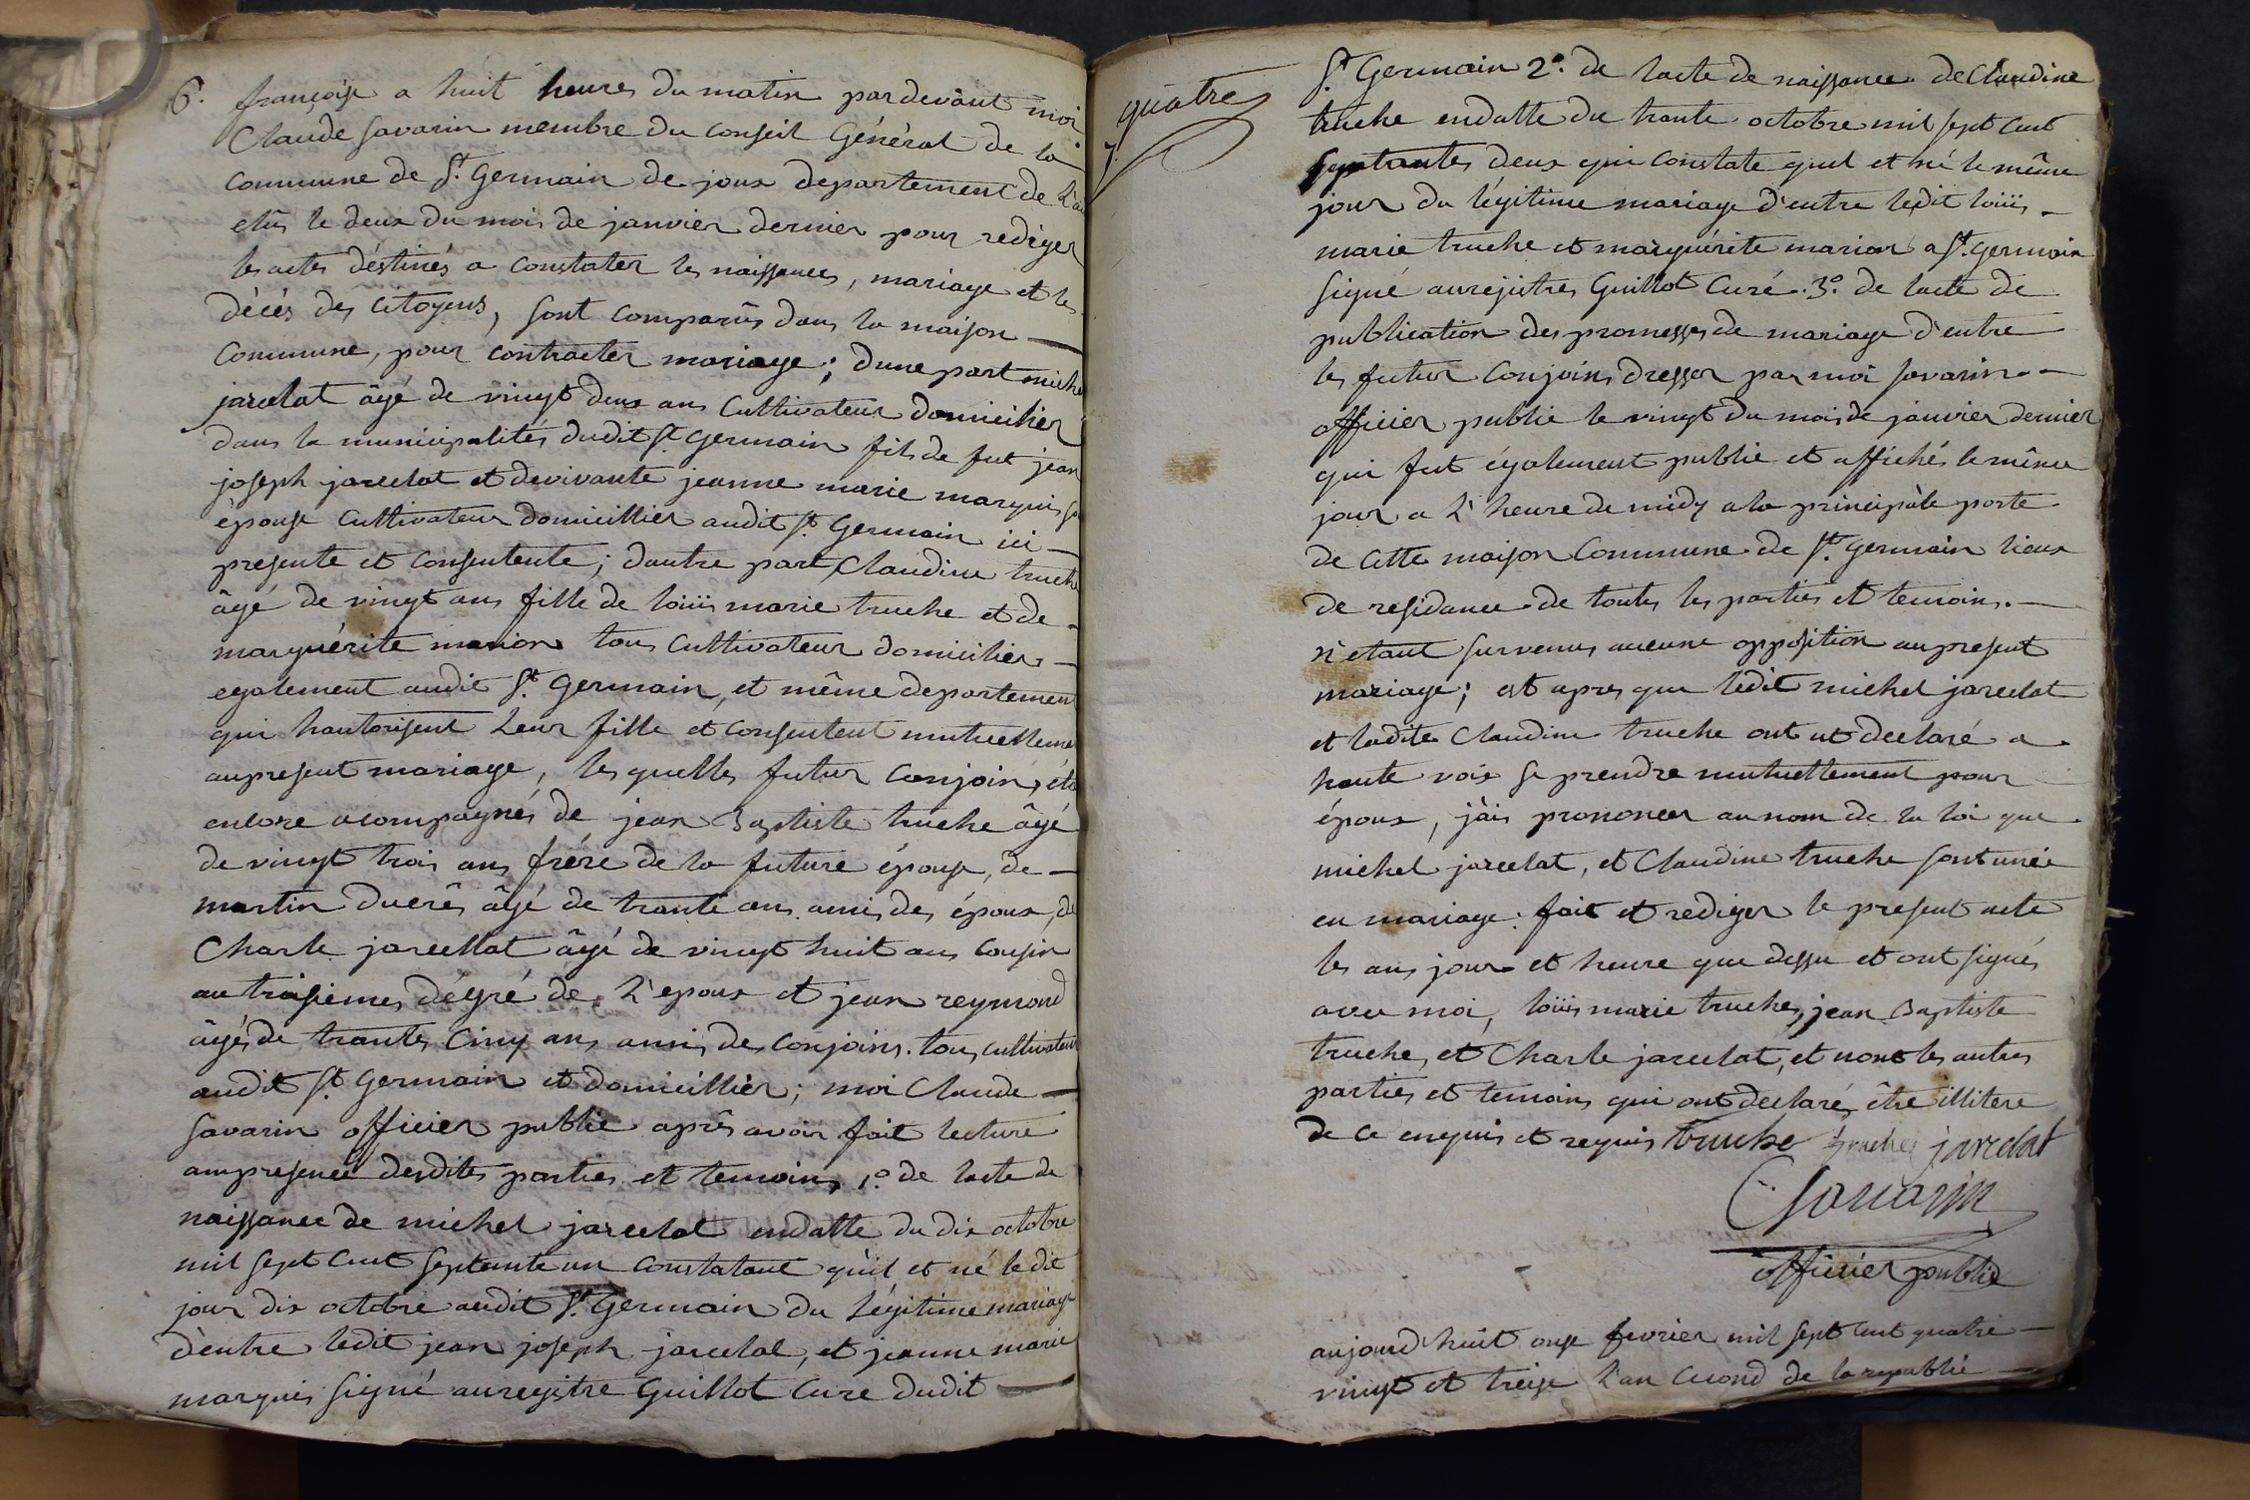 6.
françoise a huit heures du matin pardevant moi
Claude Savarin membre du Conseil Général de la
Commune de St. Germain de joux departement de L'ai
elûs le deux du mois de janvier dernier pour rediger
les actes déstinés a Constater les naissances, mariage et les
décés des Citoyens, sont comparûs dans la maison
Commune, pour contracter mariage; dune part miche
jarcelat âgé de vingt deux ans Cultivateur domicilier
dans la municipalités dudit St. Germain fils de fut jean
joseph jarcelat et devivante jeanne marie marquis sa
épouse Cultivateur domicillier audit St. Germain ici
presente et Consentente; dautre part, Claudine truche
âgé de vingt ans fille de loüis marie truche et de
marguérite marion tous Cultivateur domicilier
egalement audit St. Germain, et même departement
qui hautorisent Leur fille et Consentent mutuelleme
aupresent mariage, les quelles futur Conjoin, éta
encore acompagnés de jean Baptiste truche âgé
de vingt trois ans frére de la future épouse, de
martin ducrês âgé de trante ans amis des époux, de
Charle jarcellat âgé de vingt huit ans Cousin
au troisiemes dégré de L'epoux et jean reymond
âgés de trantes Cinq ans amis des Conjoins. tous cultivateur
audit St. Germain et domicillièr; moi Claude
Savarin officier public aprês avoir fait lecture
ampresence desdites parties et temoins, 1.o de lacte de
naissance de michel jarcelat endatte du dix octobre
mil sept Cent septante un Constatant qu'il et né ledit
jour dix octobre audit St. Germain du Légitime mariage
d'entre ledit jean joseph jarcelat, et jeanne marie
marquis signé auregitre Guillot Cure dudit
quatre
7.
St. Germain 2.o de lacte de naissance de Claudine
truche endatte du trante octobre mil sept Cent
septantes deux qui Constate quel et né le même
jour du légitime mariage d'entre ledit loüis
marie truche et marguérite marion a St. Germain
signé aurejitres Guillot Curé. 3.o de lacte de
publication des promesses de mariage d'entre
les futur Conjoins dresser par moi Savarin
officier public le vingt du mois de janvier dernier
qui fut également publié et affichés le même
jour a L'heure de midy a la principàle porte
de Cette maison Commune de St. Germain lieux
de residance de toutes les parties et temoins.
n'etant survenus aucune opposition aupresent
mariage; et apres que ledit michel jarcelat
et ladite Claudine truche ont ut declaré a
haute voix se prendre mutuellement pour
époux, jàis prononcer aunom de la loi que
michel jarcelat, et Claudine truche sont uniè
en mariage: fait et rediger le present acte
les ans jour et heure que dessu et ont signés
avec moi, loüis marie truches, jean Baptiste
truche, et Charle jarcelat, et nont les autres
parties et temoins qui ont declarés être illitere
de ce enquis et requis truche truche jarcelat
C Savarin
officiér public
aujourd'huit onze fevrier mil sept Cent quatre
vingt et treize L'an Cecond de la republi